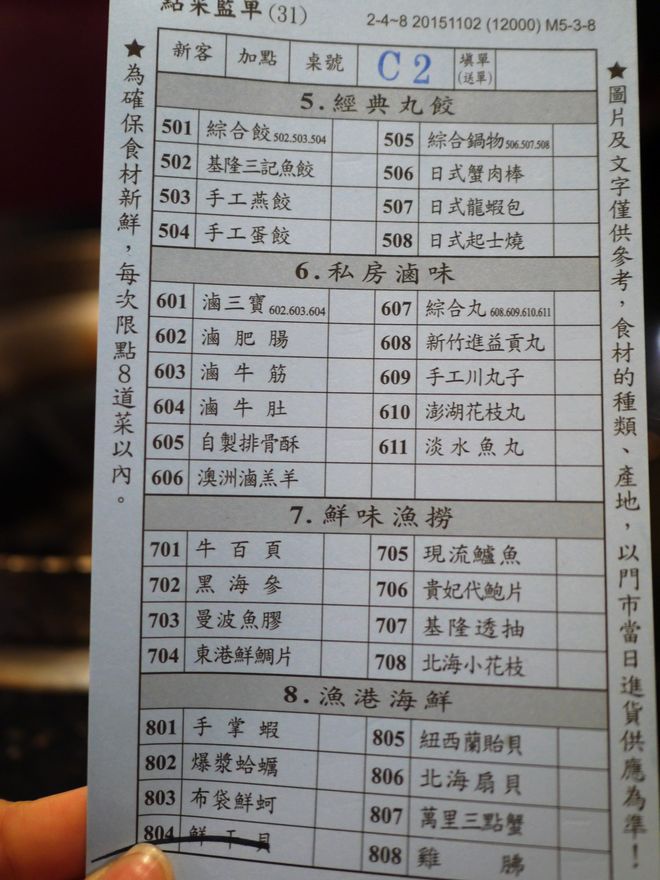 點菜藍單(31)
2-4~8 20151102 (12000) M5-3-8
新客 加點 桌號 C2 填單(送單)
5.經典丸餃
501 綜合餃 502.503.504 505 綜合鍋物 506.507.508
502 基隆三記魚餃 506 日式蟹肉棒
503 手工燕餃 507 日式龍蝦包
504 手工蛋餃 508 日式起士燒
6.私房滷味
601 滷三寶 602.603.604 607 綜合丸 608.609.610.611
602 滷肥腸 608 新竹進益貢丸
603 滷牛筋 609 手工川丸子
604 滷牛肚 610 澎湖花枝丸
605 自製排骨酥 611 淡水魚丸
606 澳洲滷羔羊
7.鮮味漁撈
701 牛百頁 705 現流鱸魚
702 黑海參 706 貴妃代鮑片
703 曼波魚膠 707 基隆透抽
704 東港鮮鯛片 708 北海小花枝
8.漁港海鮮
801 手掌蝦 805 紐西蘭貽貝
802 爆漿蛤蠣 806 北海扇貝
803 布袋鮮蚵 807 萬里三點蟹
804 鮮干貝 808 雞腨
★為確保食材新鮮，每次限點8道菜以內。
★圖片及文字僅供參考，食材的種類、產地，以門市當日進貨供應為準！